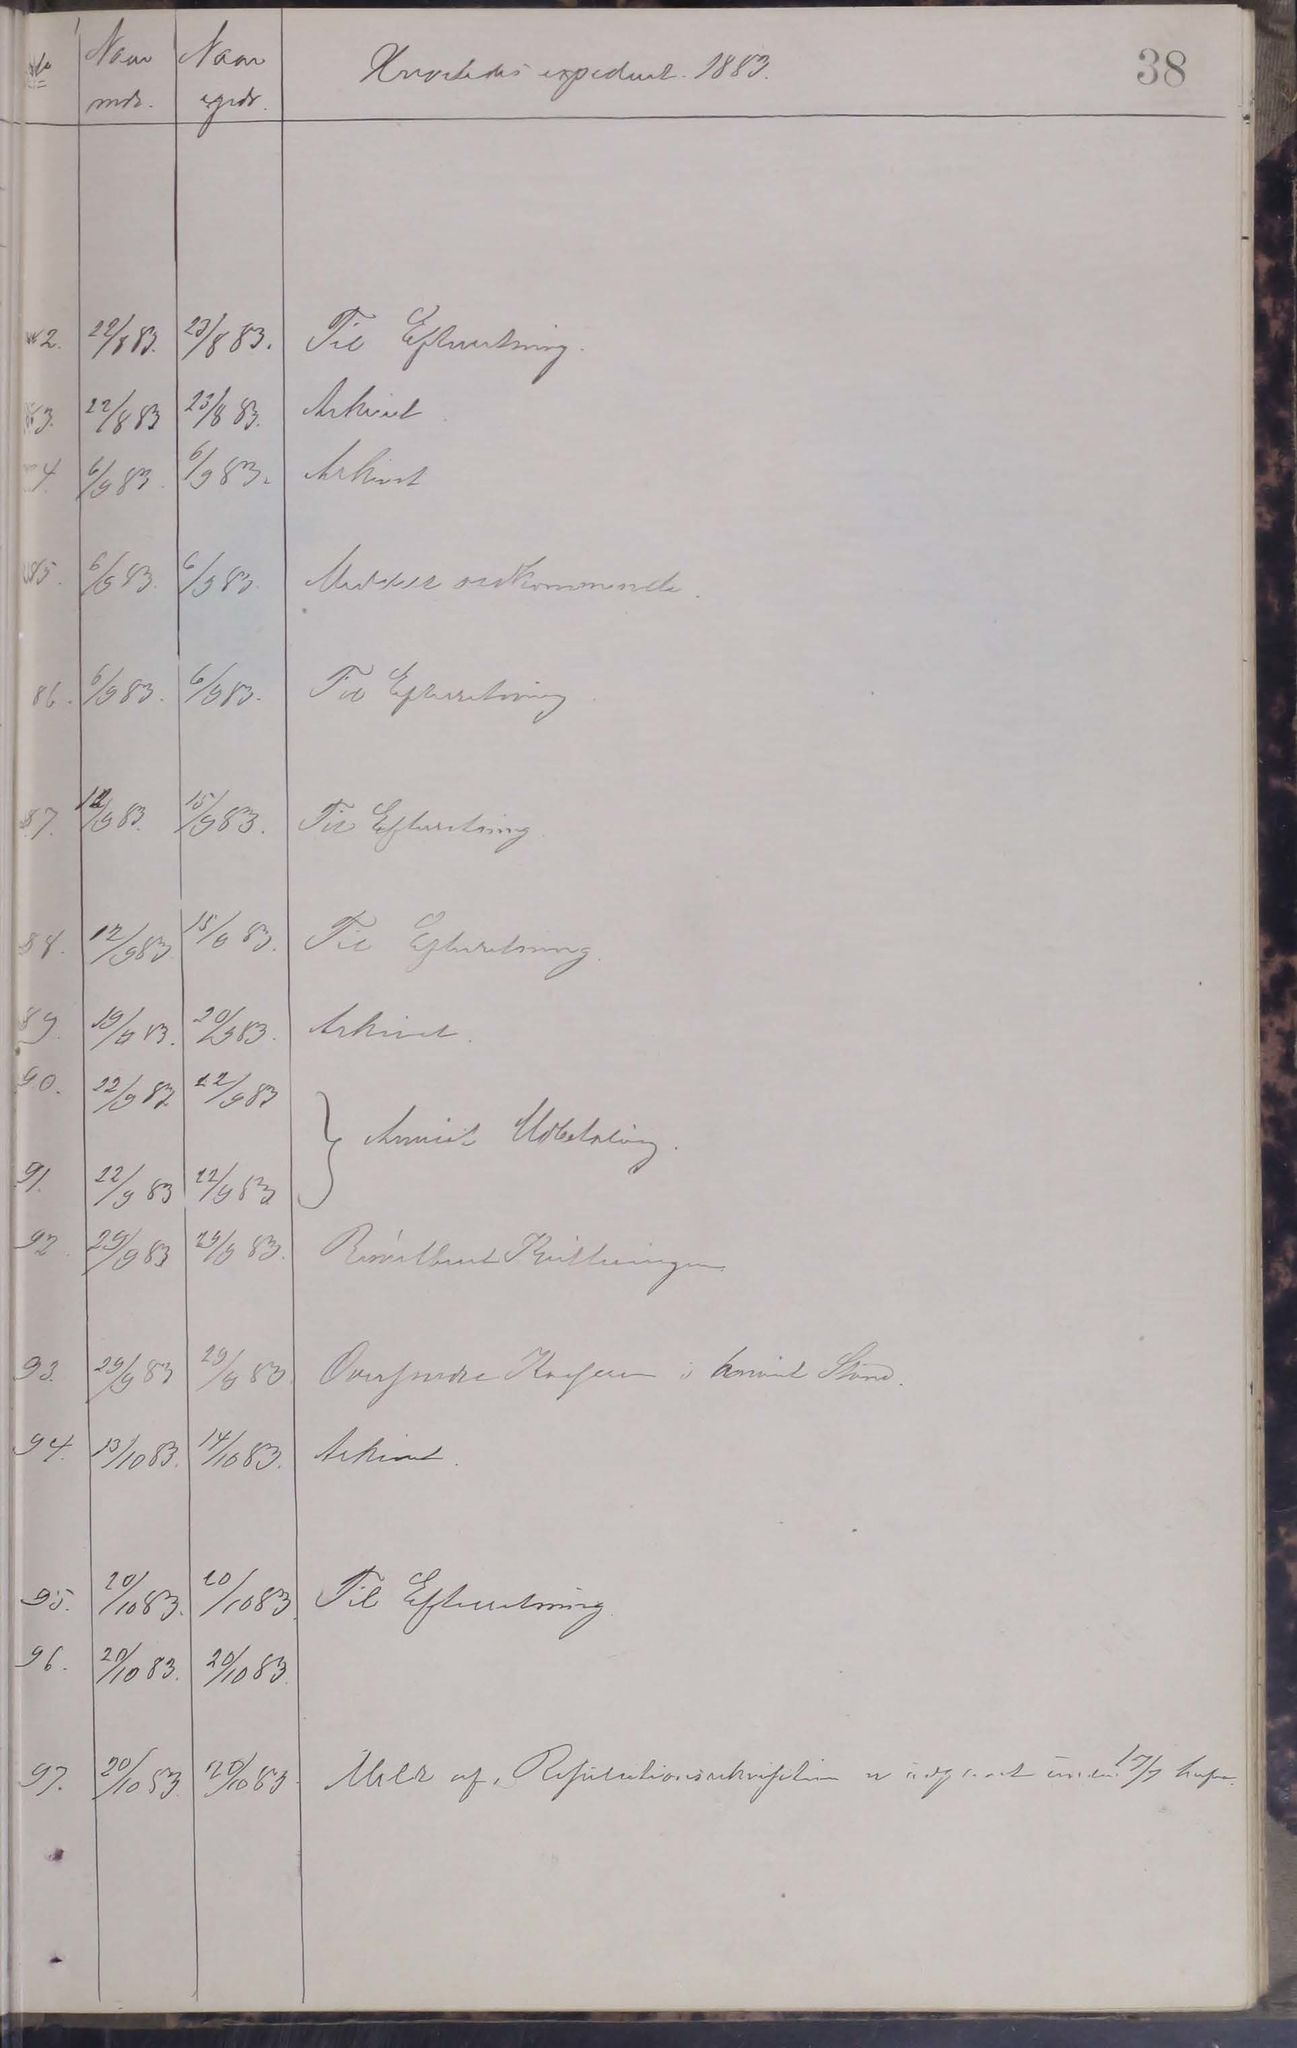 Naar Naar Hvorledes expederet. 1883. 38
indk. expdr.
2. 22/8 83. 23/8 83. Til Efterretning.
3. 22/8 83 23/8 83. Arkivet
4. 6/9 83. 6/9 83. Arkivet
85. 6/9 83. 6/9 83. Meddelt vedkommende.
86. 6/9 83. 6/9 83. Til Efterretning.
87. 12/9 83. 15/9 83. Til Efterretning.
88. 12/9 83. 15/9 83. Til Efterretning.
89. 19/9 83. 20/9 83. Arkivet.
90. 22/9 83 22/9 83
} Anvist Udbetaling.
91. 22/9 83 22/9 83
92. 29/9 83 29/9 83. Kvitteringen
93. 29/9 83 29/9 83. Oversendte Kassen i Stand.
94. 13/10 83. 14/10 83. Arkivet.
95. 20/10 83. 20/10 83 Til Efterretning
96. 20/10 83. 20/10 83
97. 20/10 83 20/10 83. at er udgaaet under 17/9